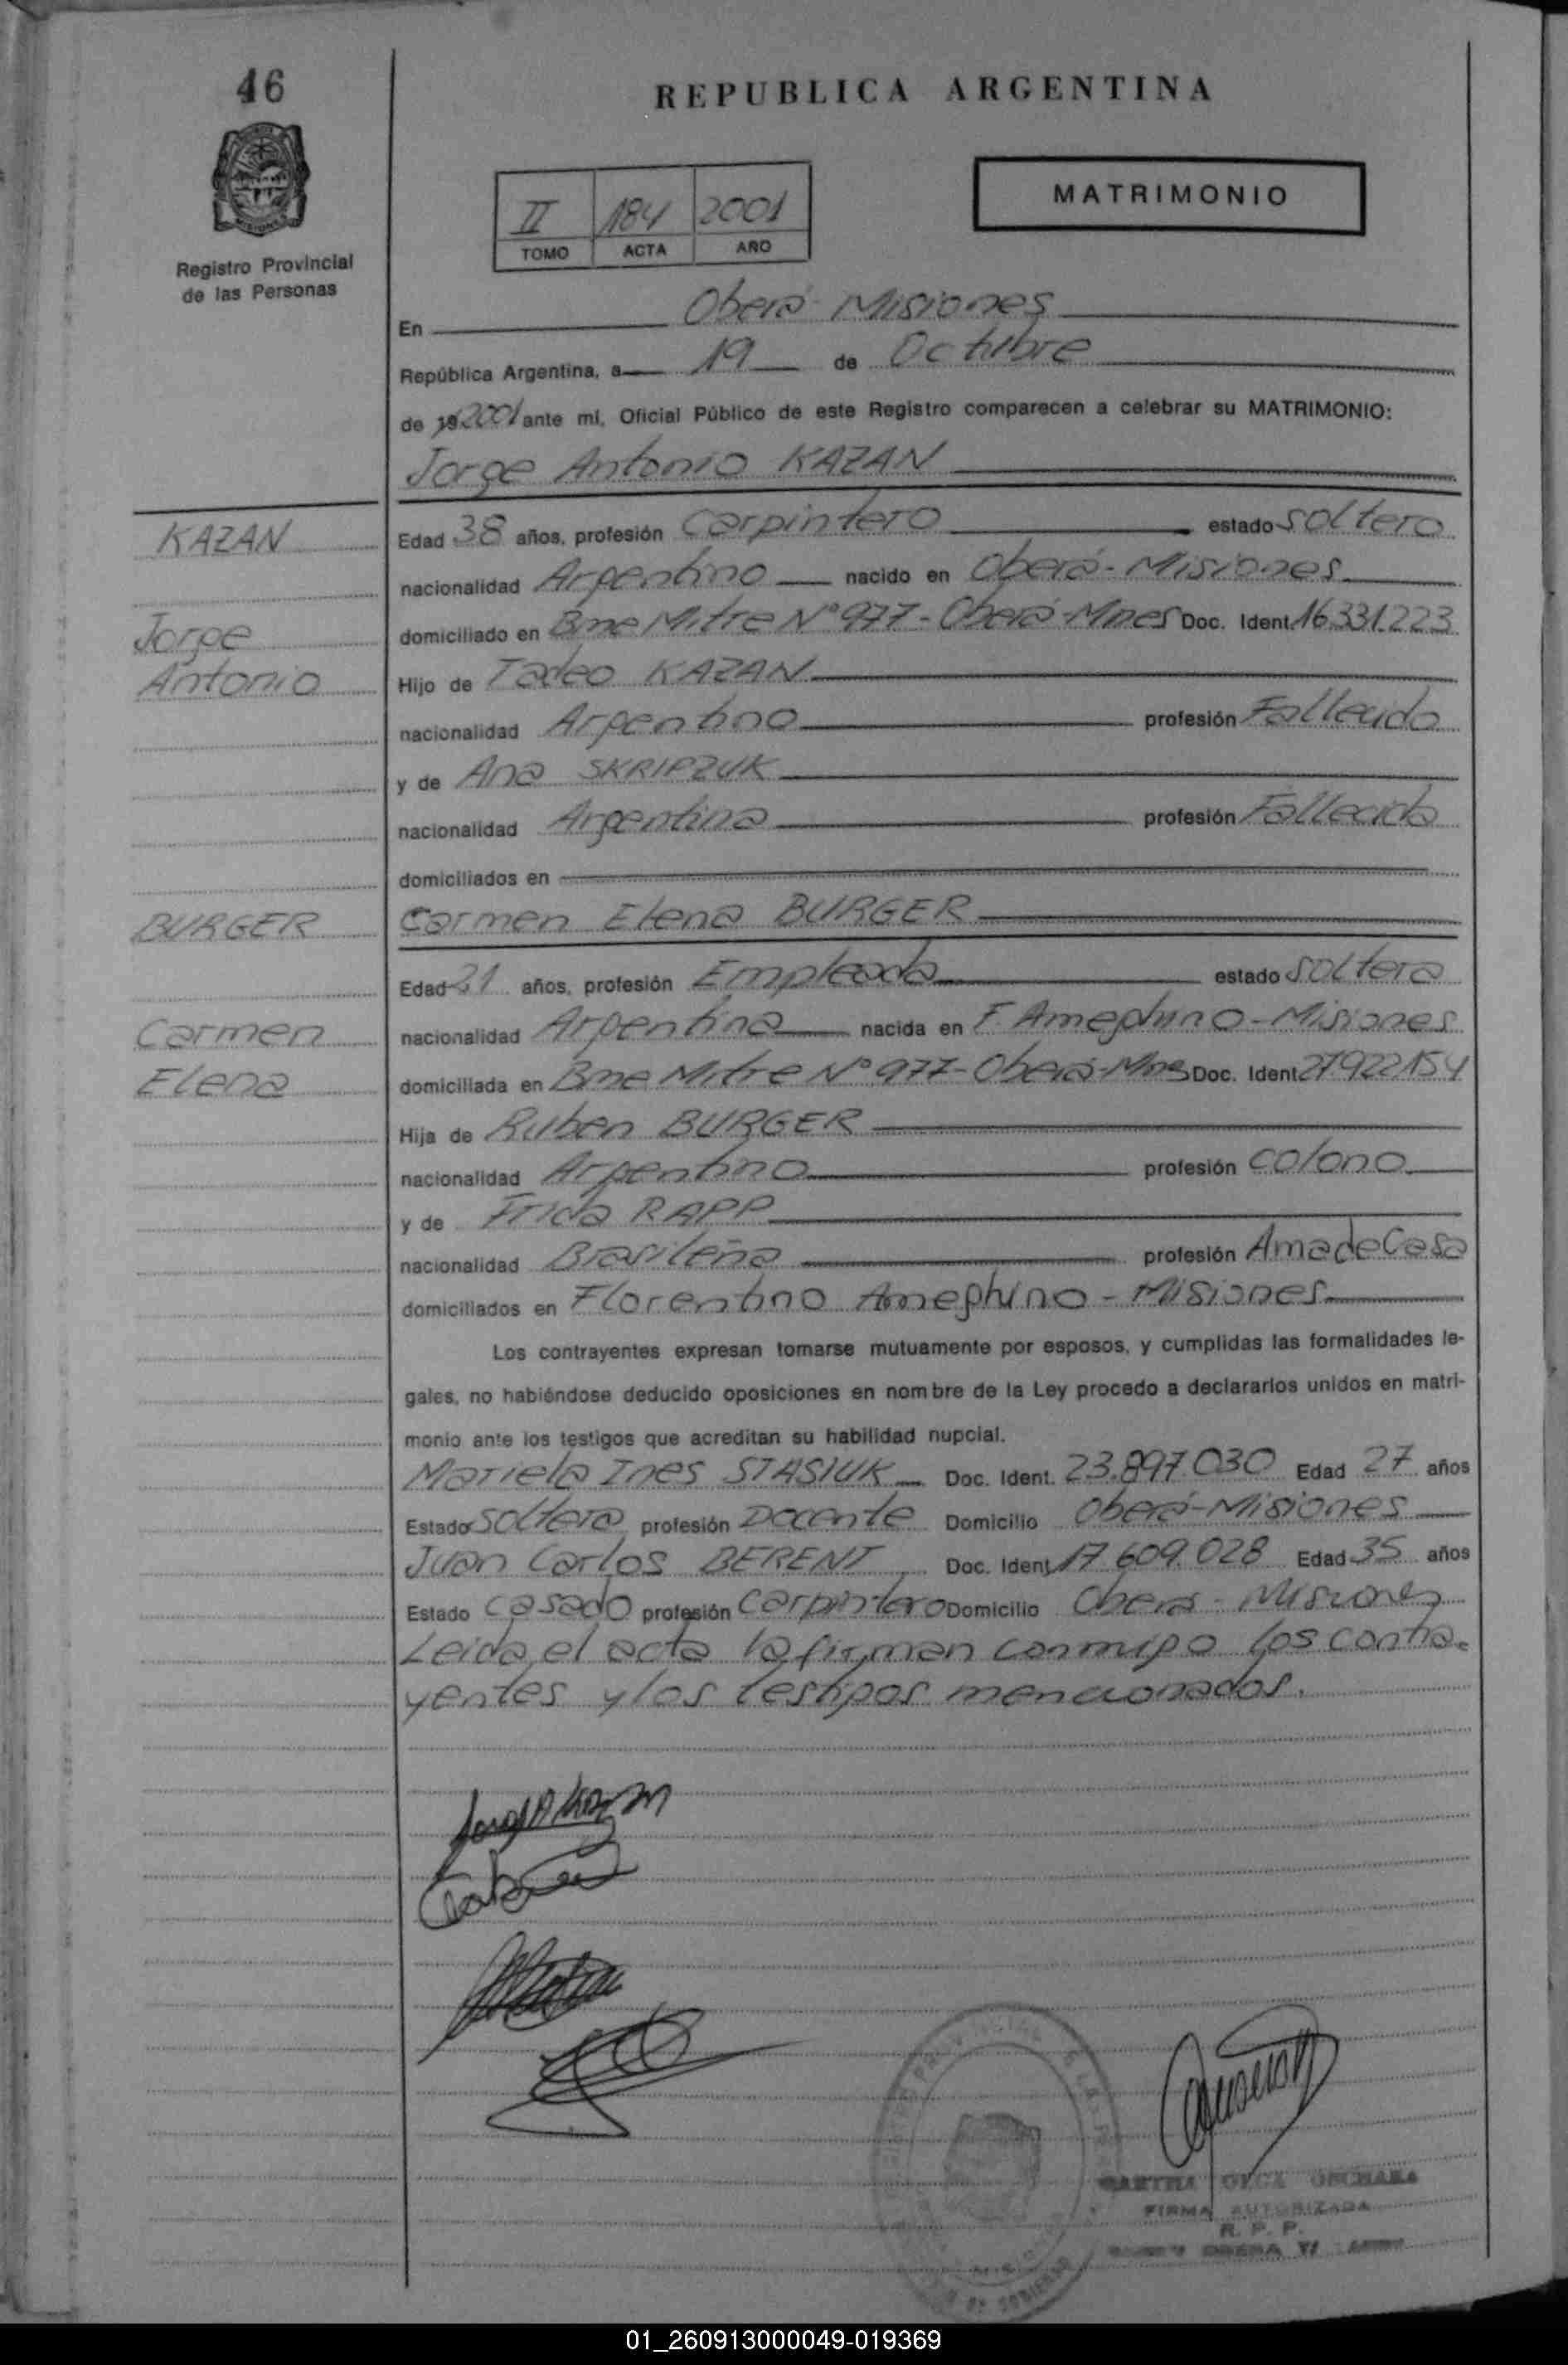 46
REPUBLICA ARGENTINA
MATRIMONIO
II 184 2001
TOMO ACTA AÑO
Registro Provincial
de las Personas
En Oberá - Misiones
República Argentina, a 19 de Octubre
de 19 2001 ante mi, Oficial Público de este Registro comparecen a celebrar su MATRIMONIO:
Jorge Antonio KAZAN
KAZAN
Edad 38 años, profesión Carpintero estado soltero
nacionalidad Argentino nacido en Oberá - Misiones
Jorge
domiciliado en Bme Mitre Nº 977 - Oberá - Mnes Doc. Ident. 16.331.223
Antonio
Hijo de Tadeo KAZAN
nacionalidad Argentino profesión Fallecido
y de Ana SKRIPZUK
nacionalidad Argentina profesión Fallecida
domiciliados en
BURGER
Carmen Elena BURGER
Edad 21 años, profesión Empleada estado soltera
Carmen
nacionalidad Argentina nacida en F. Ameghino - Misiones
Elena
domiciliada en Bme Mitre Nº 977 - Oberá - Mns Doc. Ident. 27.922.154
Hija de Ruben BURGER
nacionalidad Argentino profesión colono
y de Frida RAPP
nacionalidad Brasileña profesión Ama de Casa
domiciliados en Florentino Ameghino - Misiones
Los contrayentes expresan tomarse mutuamente por esposos, y cumplidas las formalidades le-
gales, no habiéndose deducido oposiciones en nombre de la Ley procedo a declararlos unidos en matri-
monio ante los testigos que acreditan su habilidad nupcial.
Mariela Ines STASIUK Doc. Ident. 23.897.030 Edad 27 años
Estado soltera profesión Docente Domicilio Oberá - Misiones
Juan Carlos BERENT Doc. Ident. 17.609.028 Edad 35 años
Estado casado profesión Carpintero Domicilio Oberá - Misiones
Leida el acta la firman conmigo los contra-
yentes y los testigos mencionados.
Jorge A Kazan
FIRMA AUTORIZADA
R. P. P.
01_260913000049-019369